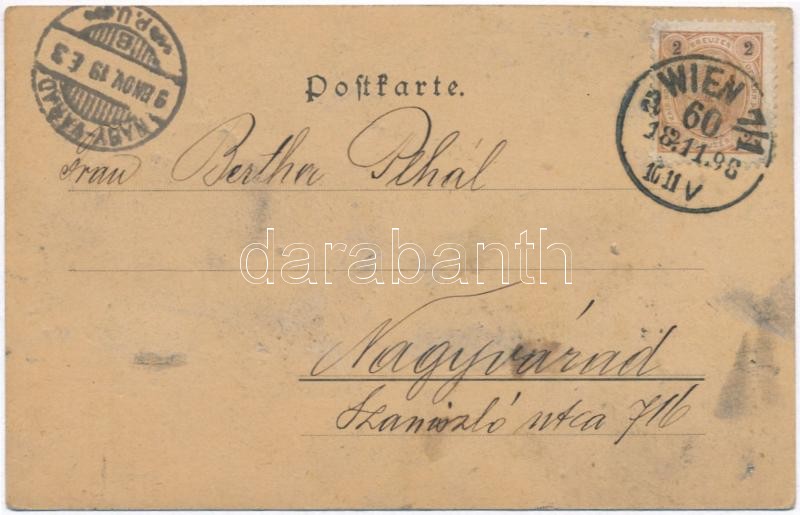 NAGYVÁRAD
98 NOV. 19 É. 3
P.U.
B
2 KREUZER 2
WIEN 1/1
60
18.11.98
10 11 V
Postkarte.
Frau Bertha Plhál
darabanth
Nagyvárad
Szaniszló utca 716